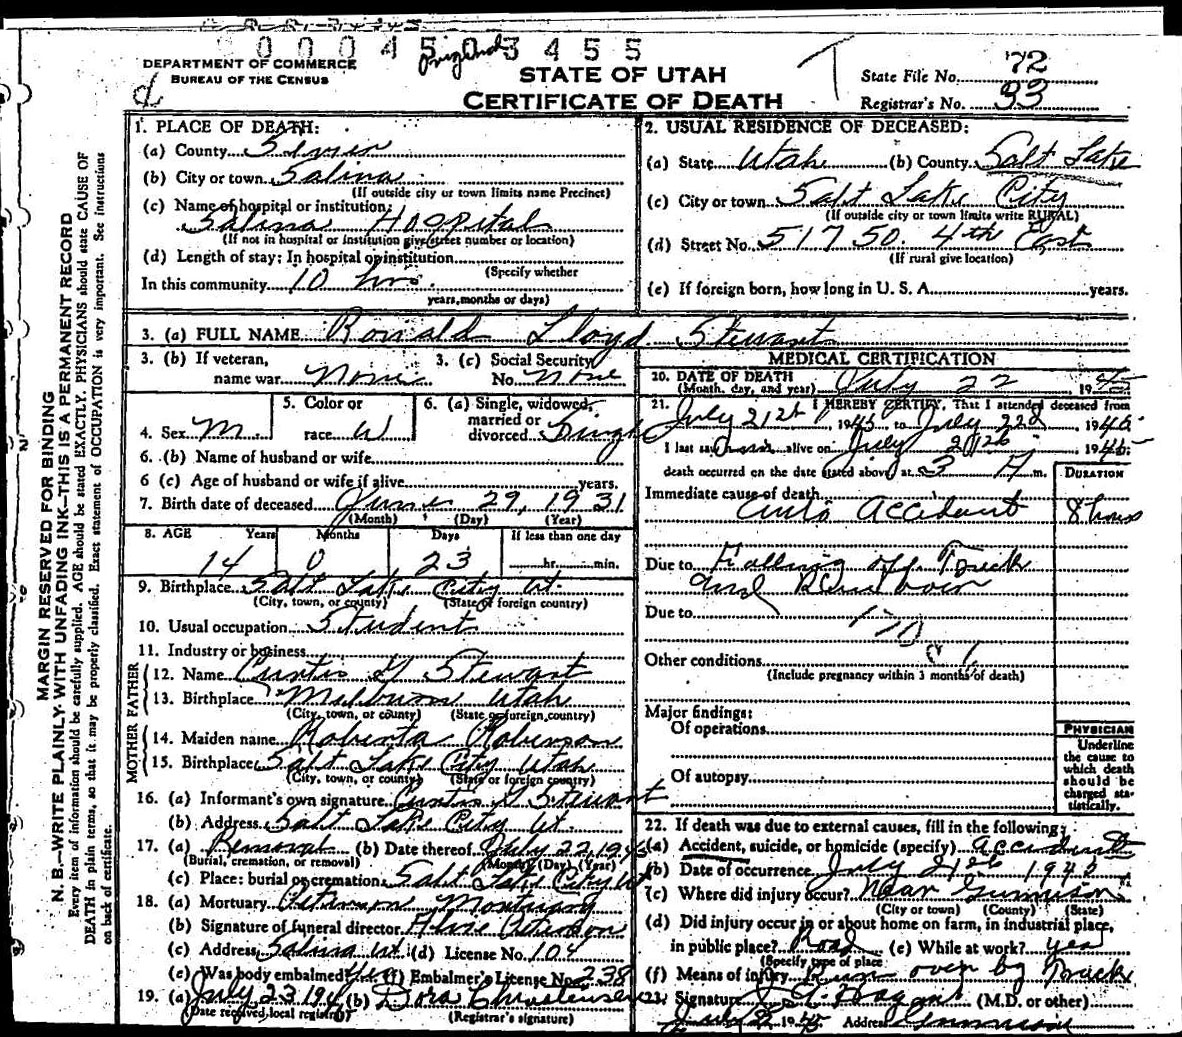 0 0 0 4 5 0 3 4 5 5
DEPARTMENT OF COMMERCE
BUREAU OF THE CENSUS
STATE OF UTAH
CERTIFICATE OF DEATH
State File No. 72
Registrar's No. 33
MARGIN RESERVED FOR BINDING
N. B.—WRITE PLAINLY WITH UNFADING INK—THIS IS A PERMANENT RECORD
Every item of information should be carefully supplied. AGE should be stated EXACTLY. PHYSICIANS should state CAUSE OF
DEATH in plain terms, so that it may be properly classified. Exact statement of OCCUPATION is very important. See instructions
on back of certificate.
1. PLACE OF DEATH:
(a) County Sevier
(b) City or town Salina
(If outside city or town limits name Precinct)
(c) Name of hospital or institution:
Salina Hospital
(If not in hospital or institution give street number or location)
(d) Length of stay: In hospital or institution
(Specify whether
In this community 10 hrs.
years, months or days)
2. USUAL RESIDENCE OF DECEASED:
(a) State Utah (b) County Salt Lake
(c) City or town Salt Lake City
(If outside city or town limits write RURAL)
(d) Street No. 517 SO. 4th East
(If rural give location)
(e) If foreign born, how long in U. S. A. years.
3. (a) FULL NAME Ronald Lloyd Stewart
3. (b) If veteran,
name war None
3. (c) Social Security
No. None
4. Sex M.
5. Color or
race W
6. (a) Single, widowed,
married or
divorced Single
6. (b) Name of husband or wife
6 (c) Age of husband or wife if alive years.
7. Birth date of deceased June 29, 1931
(Month) (Day) (Year)
8. AGE Years Months Days If less than one day
14 0 23 hr. min.
9. Birthplace Salt Lake City Ut.
(City, town, or county) (State of foreign country)
10. Usual occupation Student
11. Industry or business
FATHER
12. Name Curtis G Stewart
13. Birthplace Utah
(City, town, or county) (State or foreign country)
MOTHER
14. Maiden name Roberta Robinson
15. Birthplace Salt Lake City Utah
(City, town, or county) (State or foreign country)
16. (a) Informant's own signature Curtis G Stewart
(b) Address Salt Lake City Ut.
17. (a) Removal (b) Date thereof July 22, 1945
(Burial, cremation, or removal) (Month) (Day) (Year)
(c) Place: burial or cremation Salt Lake City Ut
18. (a) Mortuary Peterson Mortuary
(b) Signature of funeral director Peterson
(c) Address Salina Ut. (d) License No. 104
(e) Was body embalmed? Yes (f) Embalmer's License No. 238
19. (a) July 23 194 (b) Dora Christensen
(Date received local registrar) (Registrar's signature)
MEDICAL CERTIFICATION
20. DATE OF DEATH
(Month, day, and year) July 22 1945
21. I HEREBY CERTIFY, That I attended deceased from
July 21st 1945 to July 22d, 1945
I last saw him alive on July 21st 1945
death occurred on the date stated above at 3 A m.
DURATION
Immediate cause of death
Auto Accident 8 hours
Due to Falling off Truck
and Run over
Due to
Other conditions
(Include pregnancy within 3 months of death)
Major findings:
Of operations
Of autopsy
PHYSICIAN
Underline
the cause to
which death
should be
charged sta-
tistically.
22. If death was due to external causes, fill in the following:
(a) Accident, suicide, or homicide (specify) accident
(b) Date of occurrence July 21st 1945
(c) Where did injury occur? Near Gunnison
(City or town) (County) (State)
(d) Did injury occur in or about home on farm, in industrial place,
in public place? Road (e) While at work? yes
(Specify type of place
(f) Means of injury Run over by Truck
23. Signature (M.D. or other)
July 22 1945 Address Gunnison